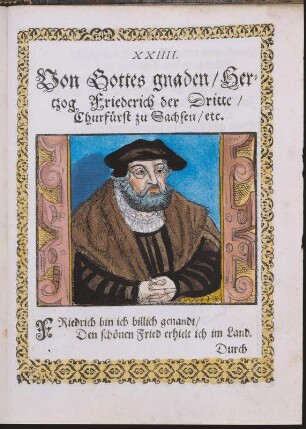 XXIIII.
Von Gottes gnaden/Her-
tzog Friederich der Dritte/
Churfürst zu Sachsen/etc.
FRiedrich bin ich billich genandt/
Den schönen Fried erhielt ich im Land.
Durch